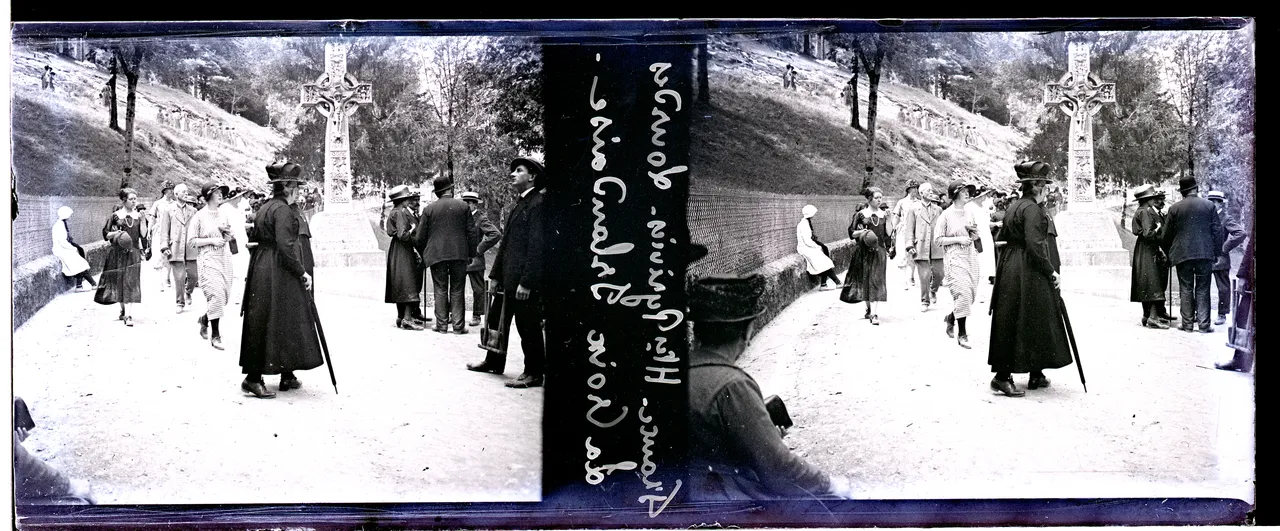 France. Htes Pyrénées. Lourdes
La Croix Irlandaise.